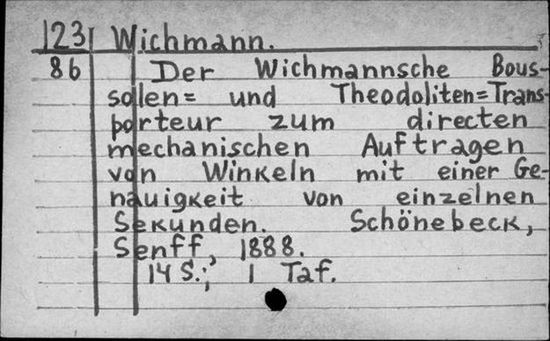 123 Wichmann.
86 Der Wichmannsche Bous-
solen= und Theodoliten=Trans-
porteur zum directen
mechanischen Auftragen
von Winkeln mit einer Ge-
nauigkeit von einzelnen
Sekunden. Schönebeck,
Senff, 1888.
14 S.; 1 Taf.